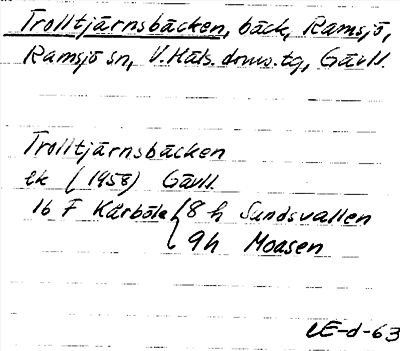 Trolltjärnsbäcken, bäck, Ramsjö,
Ramsjö sn, V. Häls. doms.tg, Gävll.
Trolltjärnsbäcken
ek (1958) Gävll.
16 F Kårböle { 8 h Sundsvallen
9h Moasen
EE-d-63